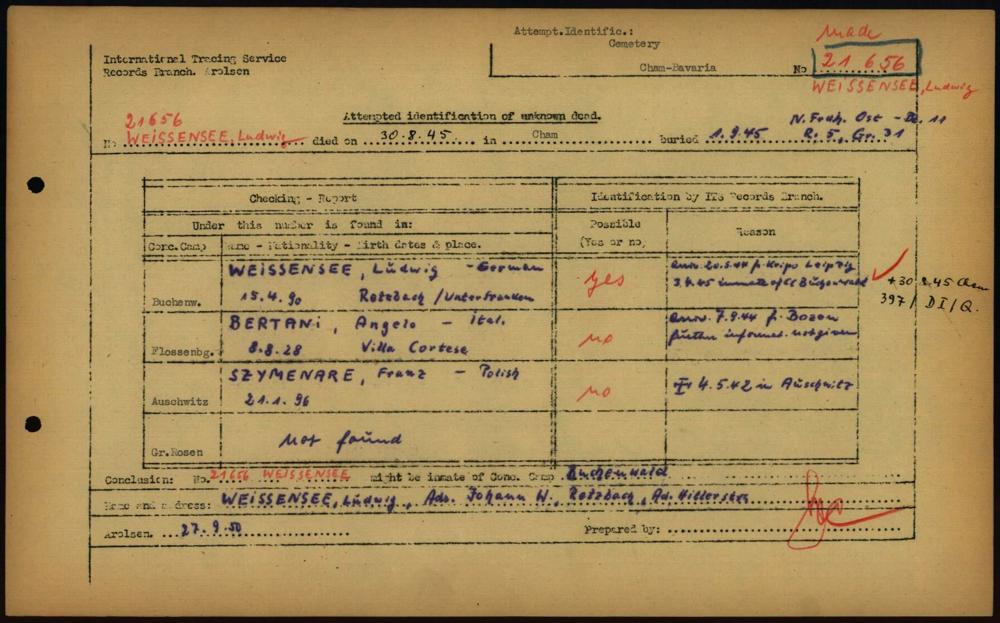 Attempt.Identific.:
Cemetery
Cham-Bavaria
made
No 21 656
WEISSENSEE, Ludwig
International Tracing Service
Records Branch. Arolsen
Attempted identification of unknown dead.
21656
No WEISSENSEE, Ludwig died on 30.8.45 in Cham buried 1.9.45
R. 5, Gr. 31
Checking - Report
Identification by ITS Records Branch.
Under this number is found in:
Possible
(Yes or no)
Reason
Conc.Camp
Name - Nationality - Birth dates & place.
Buchenw.
WEISSENSEE, Ludwig - German
15.4.90 Retzbach / Unterfranken
yes
arriv. 20.5.44 f. Kripo Leipzig
3.4.45 inmate of CC Buchenwald
+30.8.45 Cham
397 / DI/Q.
Flossenbg.
BERTANI, Angelo - ital.
8.8.28 Villa Cortese
no
arriv. 7.9.44 f. Bozen
further informat. not given
Auschwitz
SZYMENARE, Franz - Polish
21.1.96
no
4.5.42 in Auschwitz
Gr.Rosen
not found
Conclusion: No. 21656 WEISSENSEE might be inmate of Conc. Camp Buchenwald
Name and address: WEISSENSEE, Ludwig, Adr. Johann W., Retzbach,
Arolsen. 27.9.50
Prepared by: